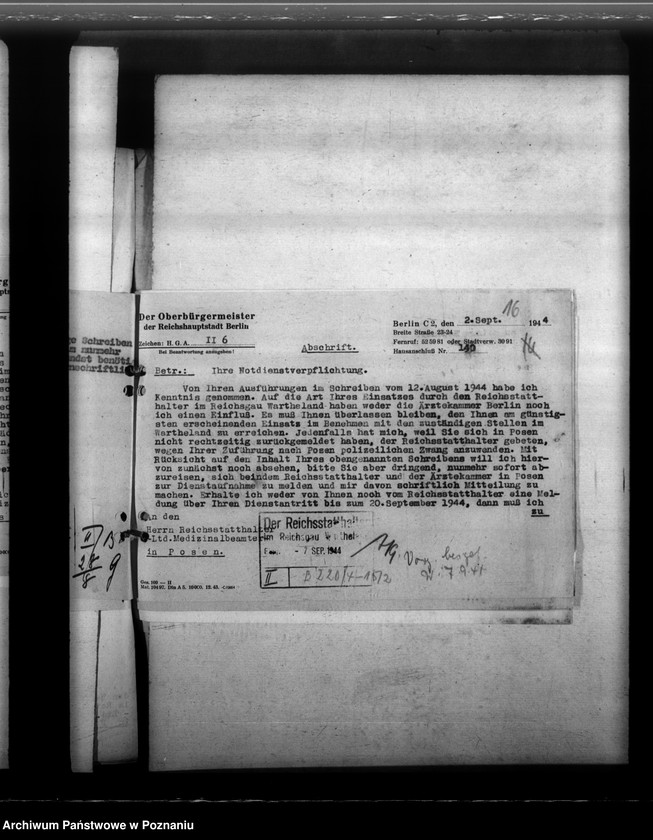 16
Der Oberbürgermeister
der Reichshauptstadt Berlin
Zeichen: H. G. A. II 6
Bei Beantwortung anzugeben!
Berlin C 2, den 2.Sept. 1944
Breite Straße 23-24
Fernruf: 52 59 81 oder Stadtverw. 30 91
Hausanschluß Nr. 140
Abschrift.
Betr.: Ihre Notdienstverpflichtung.
Von Ihren Ausführungen im Schreiben vom 12.August 1944 habe ich
Kenntnis genommen. Auf die Art Ihres Einsatzes durch den Reichsstatt-
halter im Reichsgau Wartheland haben weder die Ärztekammer Berlin noch
ich einen Einfluß. Es muß Ihnen überlassen bleiben, den Ihnen am günstig-
sten erscheinenden Einsatz im Benehmen mit den zuständigen Stellen im
Wartheland zu erreichen. Jedenfalls hat mich, weil Sie sich in Posen
nicht rechtzeitig zurückgemeldet haben, der Reichsstatthalter gebeten,
wegen Ihrer Zuführung nach Posen polizeilichen Zwang anzuwenden. Mit
Rücksicht auf den Inhalt Ihres obengenannten Schreibens will ich hier-
von zunächst noch absehen, bitte Sie aber dringend, nunmehr sofort ab-
zureisen, sich beindem Reichsstatthalter und der Ärztekammer in Posen
zur Dienstaufnahme zu melden und mir davon schriftlich Mitteilung zu
machen. Erhalte ich weder von Ihnen noch vom Reichsstatthalter eine Mel-
dung über Ihren Dienstantritt bis zum 20.September 1944, dann muß ich
zu
An den
Herrn Reichsstatthalter
Ltd.Medizinalbeamter
in Posen.
Der Reichsstatthalter
im Reichsgau Wartheland
- 7 SEP. 1944
II B 220/4-15/2
Schreiben
nunmehr
II B
28 g
8
Archiwum Państwowe w Poznaniu